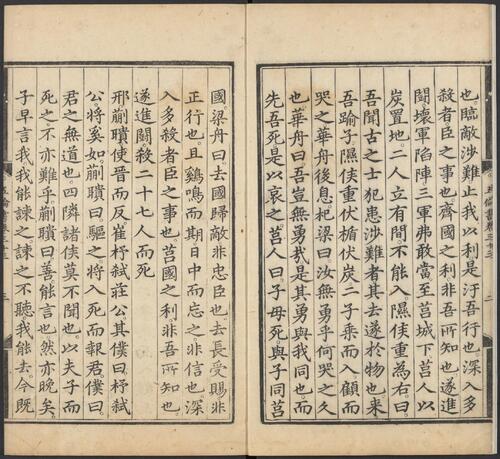 也。臨敵涉難止我以利是汙吾行也。深入多
殺者臣之事也齊國之利非吾所知也遂進
鬪壞軍陷陣三軍弗敢當至莒城下莒人以
炭置地。二人立有間不能入。隰侯重為右。曰
吾聞古之士犯患涉難者其去遂於物也。來
吾踰子隰侯重伏楯伏炭二子乘而入顧而
哭之華舟後息杞梁曰汝無勇乎何哭之久
也。華舟曰吾豈無勇哉是其勇與我同也。而
先吾死是以哀之。莒人曰。子毋死與子同莒
國。梁舟曰。去國歸敵非忠臣也。去長受賜非
正行也。且鷄鳴而期日中而忘之。非信也。深
入多殺者臣之事也。莒國之利。非吾所知也
遂進鬪。殺二十七人而死
邢蒯聵使晉而反崔杼弒莊公其僕曰杼弒
公。將奚如。蒯聵曰驅之。將入死而報君僕曰。
君之無道也四隣諸侯莫不聞也以夫子而
死之不亦難乎。蒯聵曰善能言也然亦晚矣。
子早言我我能諫之諫之不聽。我能去。今既
五倫書卷
三